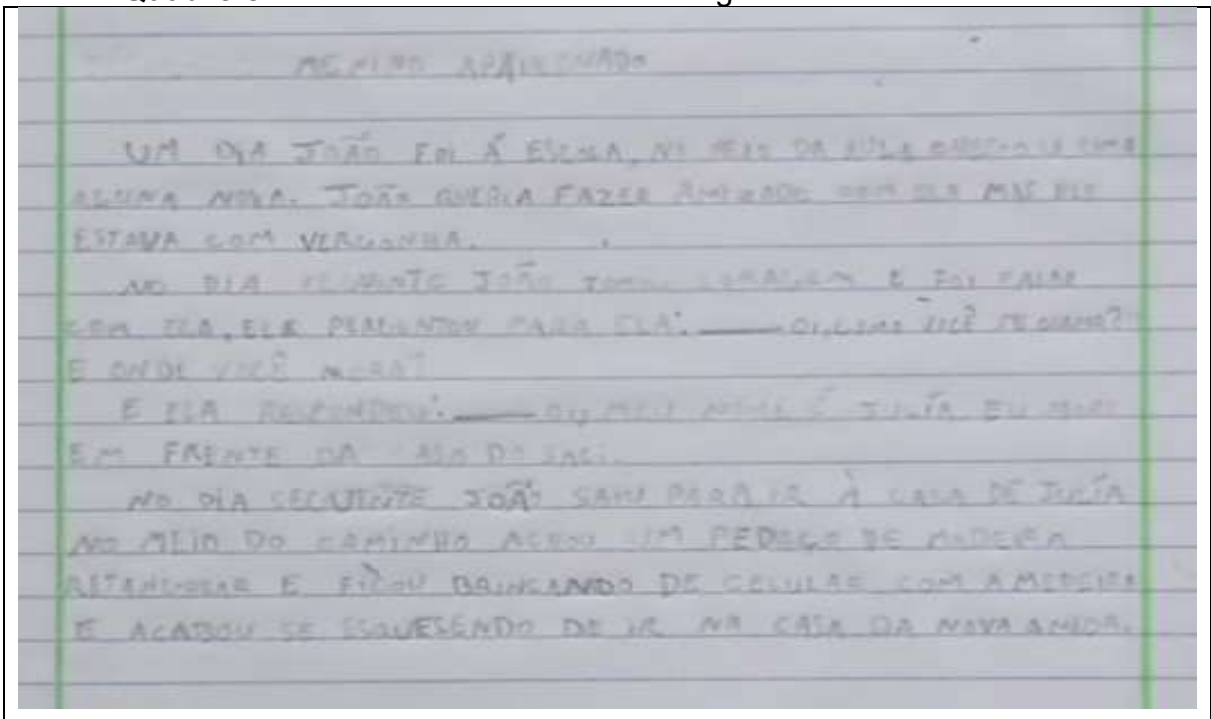 MENINO APAIXONADO
UM DIA JOÃO FOI Á ESCOLA, NO MEIO DA AULA UMA
ALUNA NOVA. JOÃO QUERIA FAZER AMIZADE COM ELA MAS ELE
ESTAVA COM VERGONHA.
NO DIA SEGUINTE JOÃO TOMOU CORAGEM E FOI FALAR
COM ELA, ELE PERGUNTOU PARA ELA: — OI, COMO VOCÊ SE CHAMA?
E ONDE VOCÊ MORA?
E ELA RESPONDEU: — OI, MEU NOME É JULÍA EU MORO
EM FRENTE DA CASA DO SACI.
NO DIA SEGUINTE JOÃO SAIU PARA IR À CASA DE JULÍA
NO MEIO DO CAMINHO ACHOU UM PEDAÇO DE MADEIRA
E FICOU BRINCANDO DE CELULAR COM A MEDEIRA
E ACABOU SE ESQUESENDO DE IR NA CASA DA NOVA AMIGA.